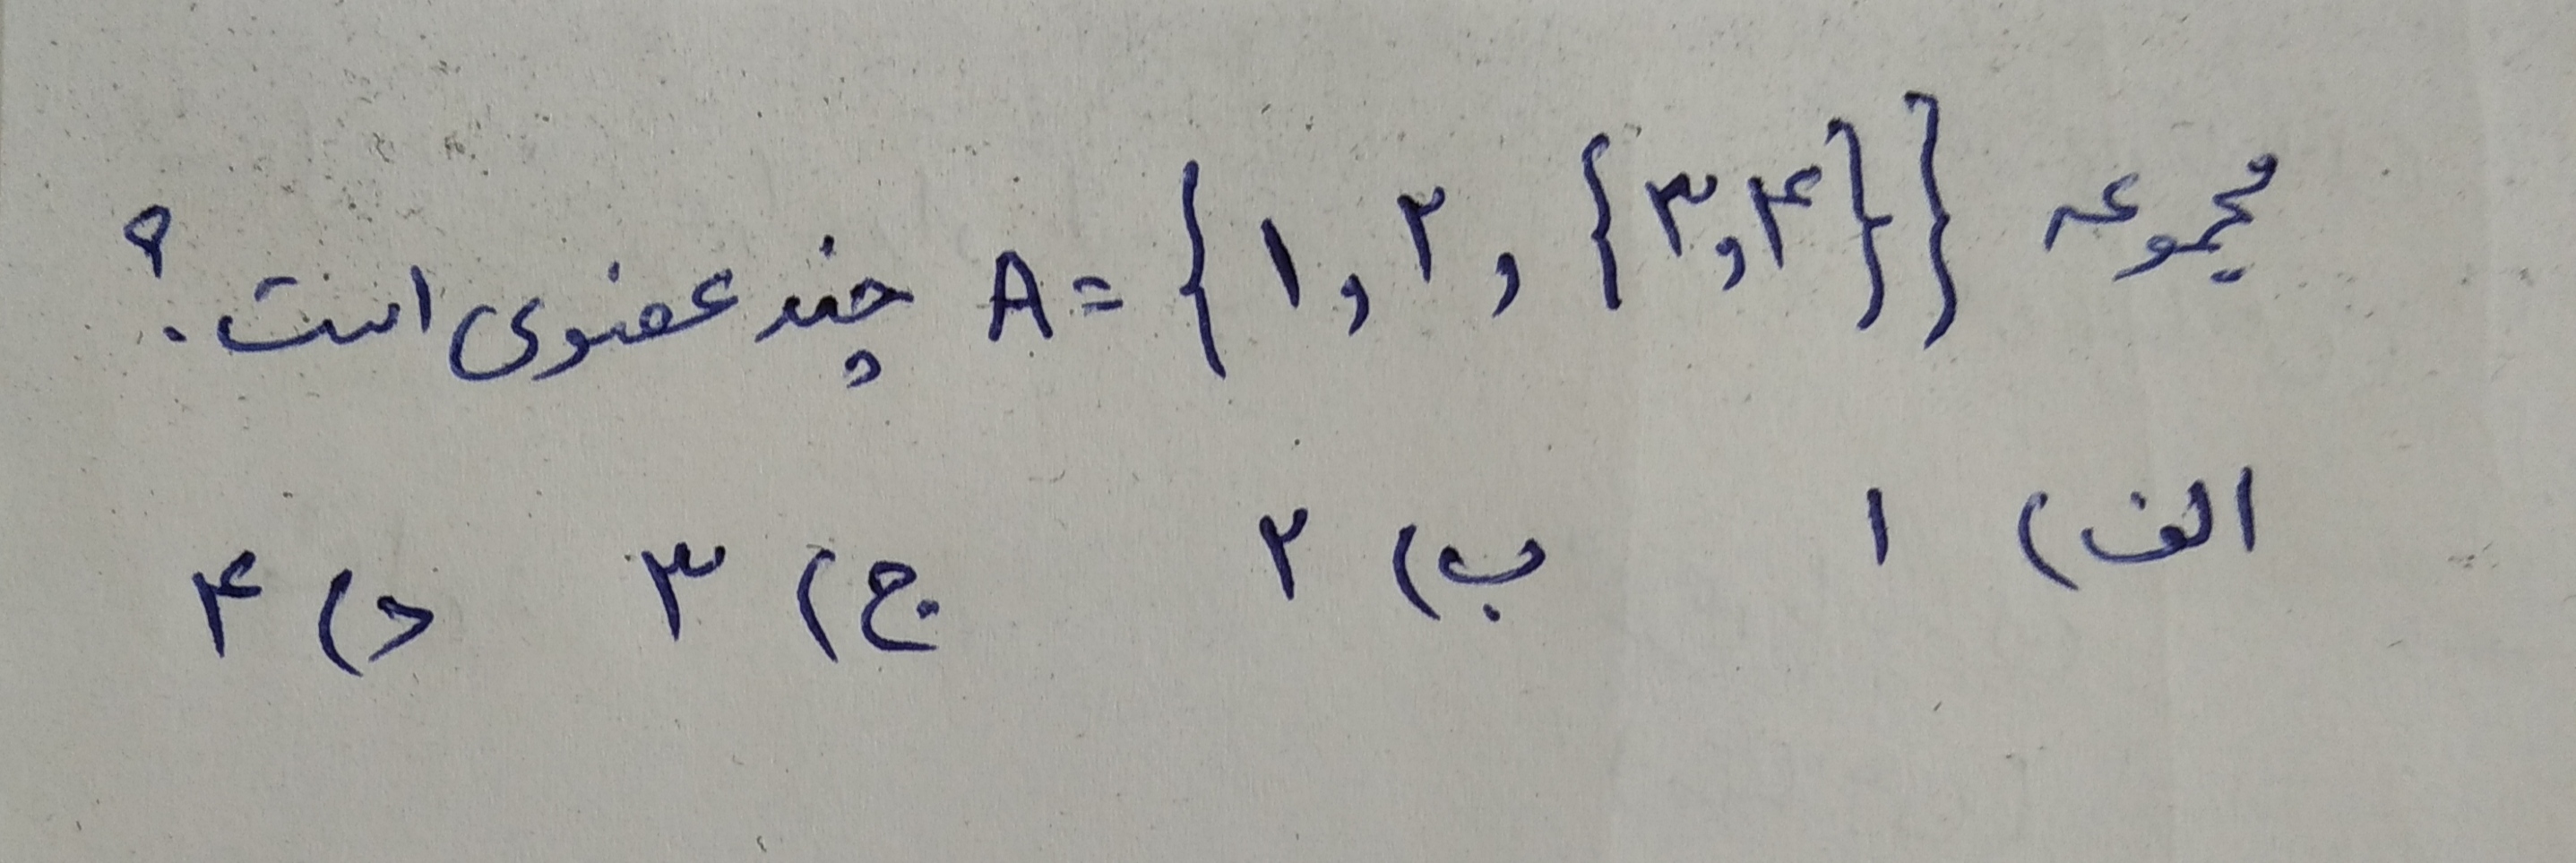 مجموعه A = {۱, ۲, {۳,۴}} چند عضوی است؟
الف) ۱ ب) ۲ ج) ۳ د) ۴